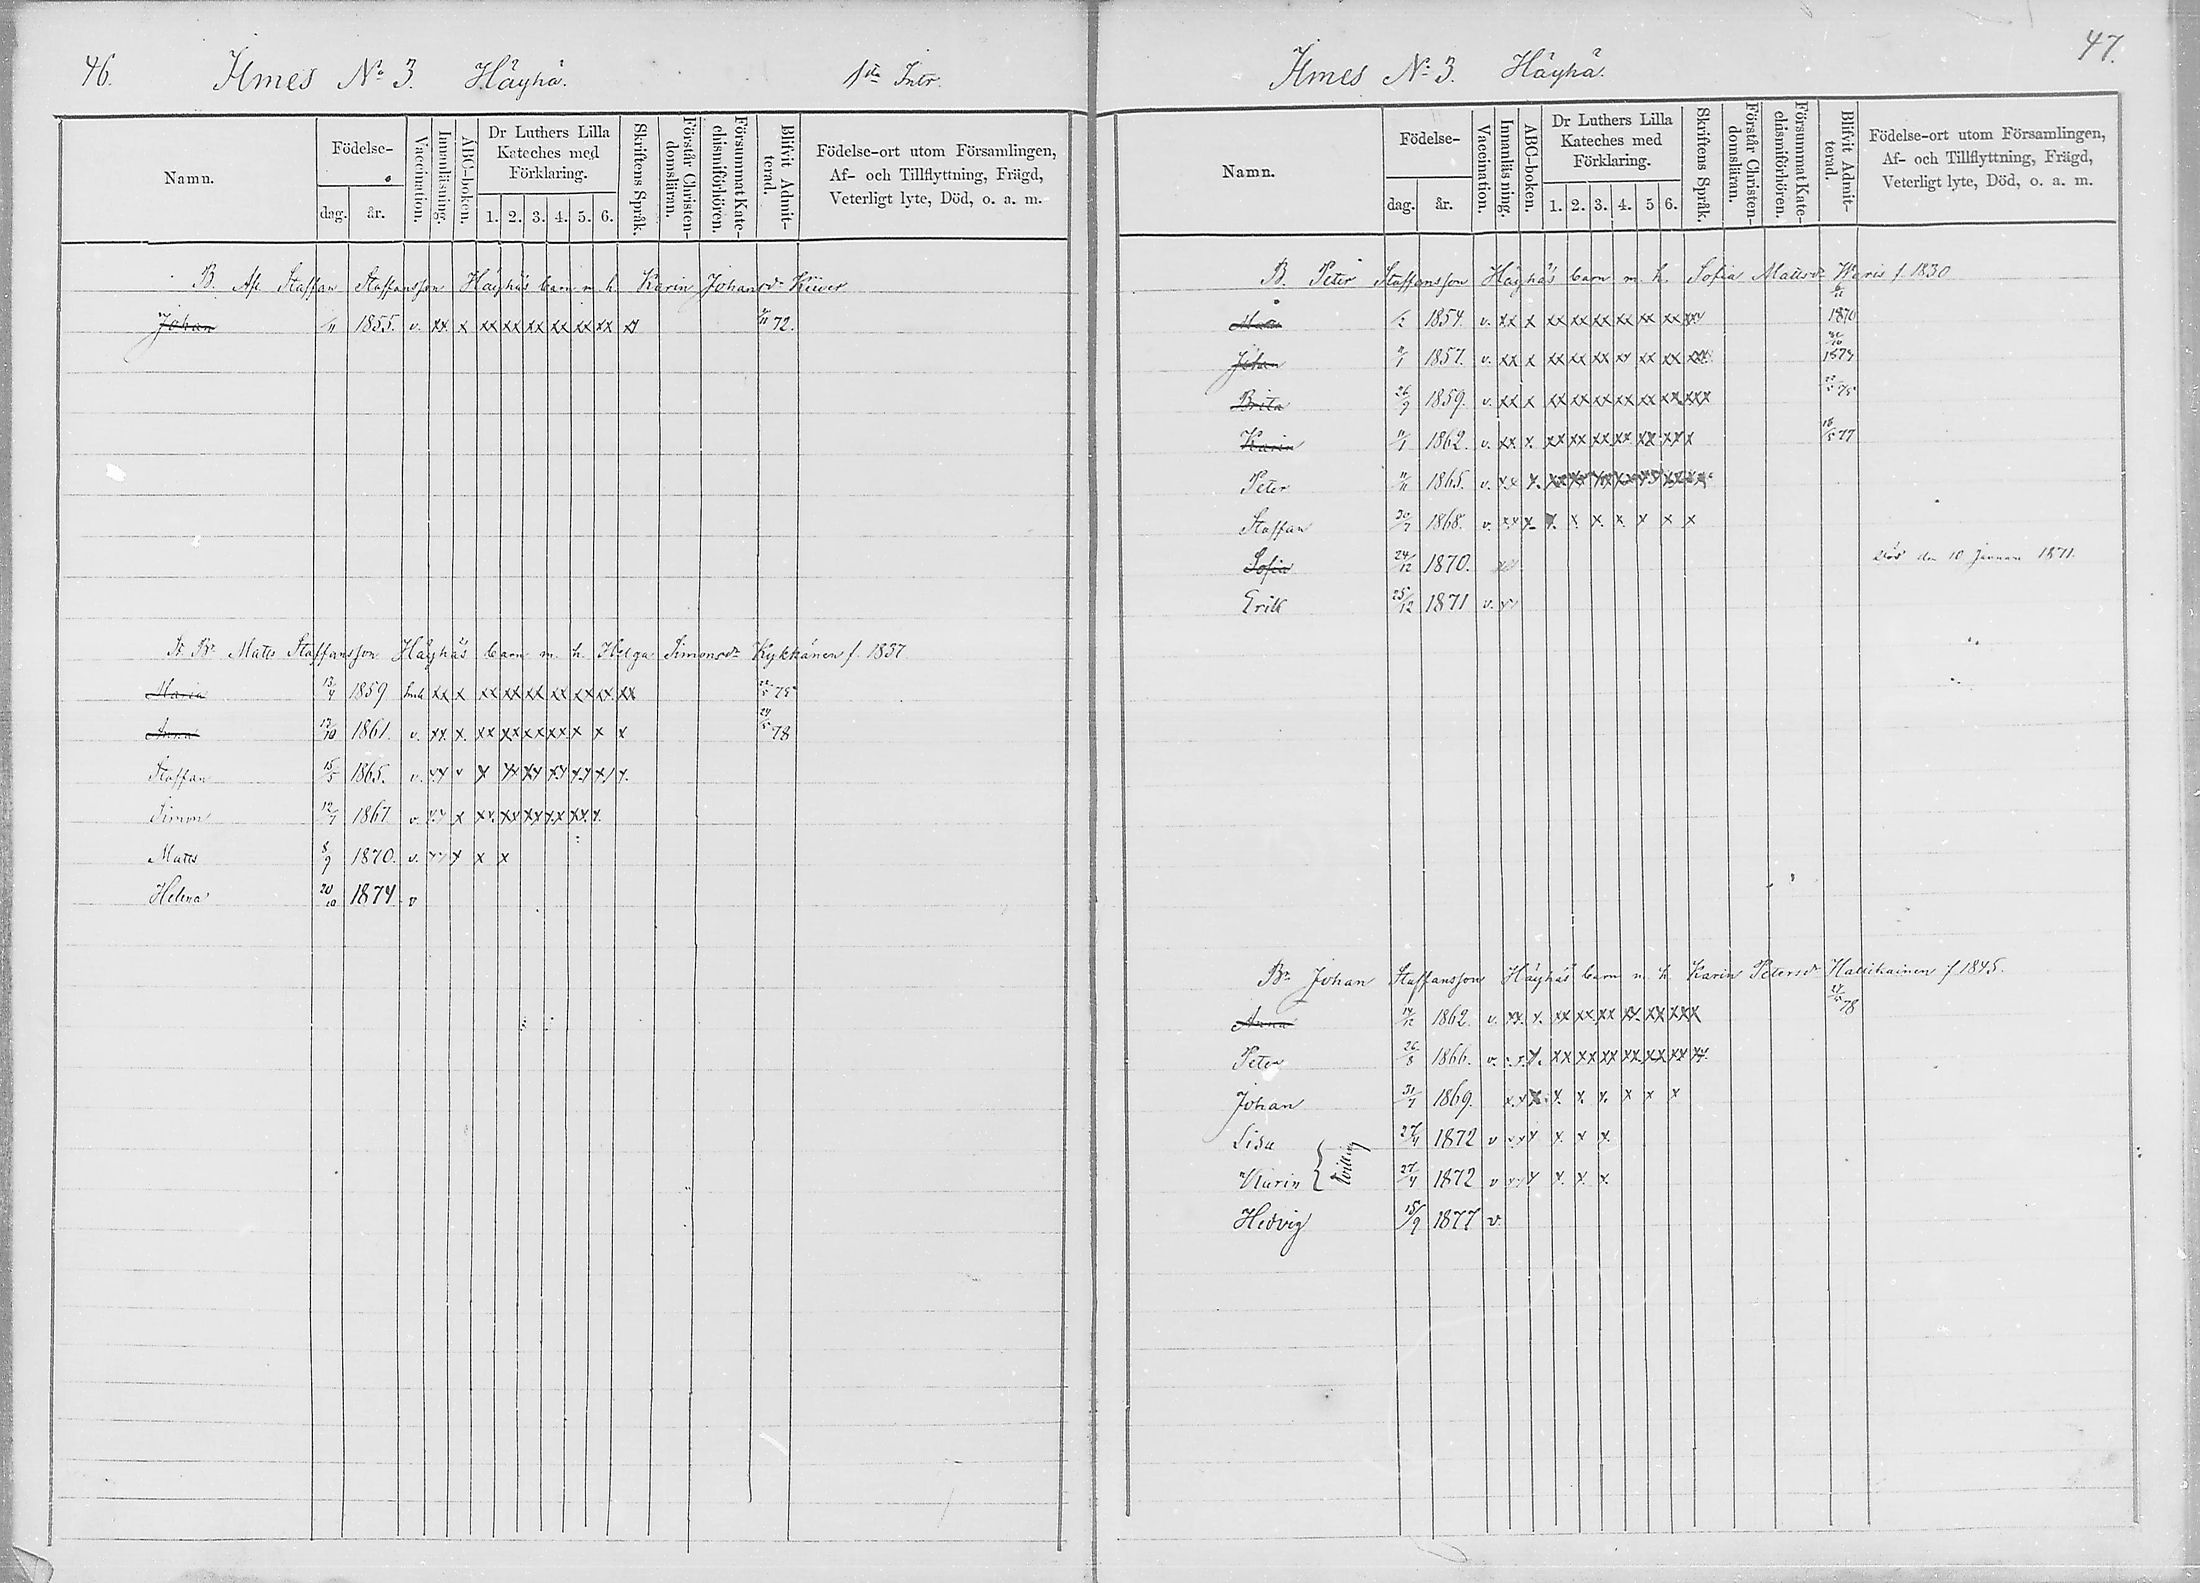 46.
Ilmes No 3. Häyhä. 1sta Intr.
Namn.
Födelse-
dag. år.
Vaccination.
Innanläsning.
ABC-boken.
Dr Luthers Lilla Kateches med Förklaring.
1. 2. 3. 4. 5. 6.
Skriftens Språk.
Förstår Christen-domsläran.
Försummat Kate-chismiförhören.
Blifvit Admit-terad.
Födelse-ort utom Församlingen,
Af- och Tillflyttning, Frägd,
Veterligt lyte, Död, o. a. m.
B. Afl Staffan Staffansson Häyhäs barn m. h. Karin Johansdr Kiiver
Johan /11 1855. v. xx x xx xx xx xx xx xx xx /11 72.
Br Matts Staffansson Häyhäs barn m. h. Helga Simonsdr Kykkänen f. 1837
Maria 13/4 1859 xx x xx xx xx xx xx xx xx 22/5 75
Anna 12/10 1861. v. xx x. xx xx xx xx x x x 24/5 78
Staffan 15/5 1865. v. xx x x xx xx xx xx x x
Simon 12/7 1867 v. xx x xx. xx xx xx xx x.
Matts 8/9 1870. v. xx x x x
Helena 20/10 1874 v
47.
Ilmes No 3. Häyhä.
Namn.
Födelse-
dag. år.
Vaccination.
Innanläsning.
ABC-boken.
Dr Luthers Lilla Kateches med Förklaring.
1. 2. 3. 4. 5 6.
Skriftens Språk.
Förstår Christen-domsläran.
Försummat Kate-chismiförhören.
Blifvit Admit-terad.
Födelse-ort utom Församlingen,
Af- och Tillflyttning, Frägd,
Veterligt lyte, Död, o. a. m.
B. Peter Staffansson Häyhäs barn m. h. Sofia Mattsdr Waris f. 1830
1854. v. xx x xx xx xx xx xx xx xx 1870
Johan 1857. v. xx x xx xx xx xx xx xx xx 1873
Brita 26/9 1859. v. xx x xx xx xx xx xx xx xxx 22/5 75
Karin 11/1 1862. v. xx x xx xx xx xx xx xx x 18/5 77
Peter 11/11 1865. v. xx x. xx xx xx xx xx xx xx
Staffan 30/7 1868. v. xx x x. x. x. x. x x x
Sofia 24/12 1870. död den 10 Januari 1871.
Erik 25/12 1871 v. xx
Br Johan Staffansson Häyhäs barn m. h. Karin Petersdr Hallikainen f 1845.
Anna 14/12 1862. v. xx. x. xx xx xx xx xx xx x 24/5 78
Peter 26/8 1866. v. x. x. xx xx xx xx xx xx xx.
Johan 31/7 1869. xx x x. x. x. x x x
Lisa 27/4 1872 v xx x x. x x.
Karin 27/4 1872 v xx x x. x. x.
Hedvig 15/9 1877 v.